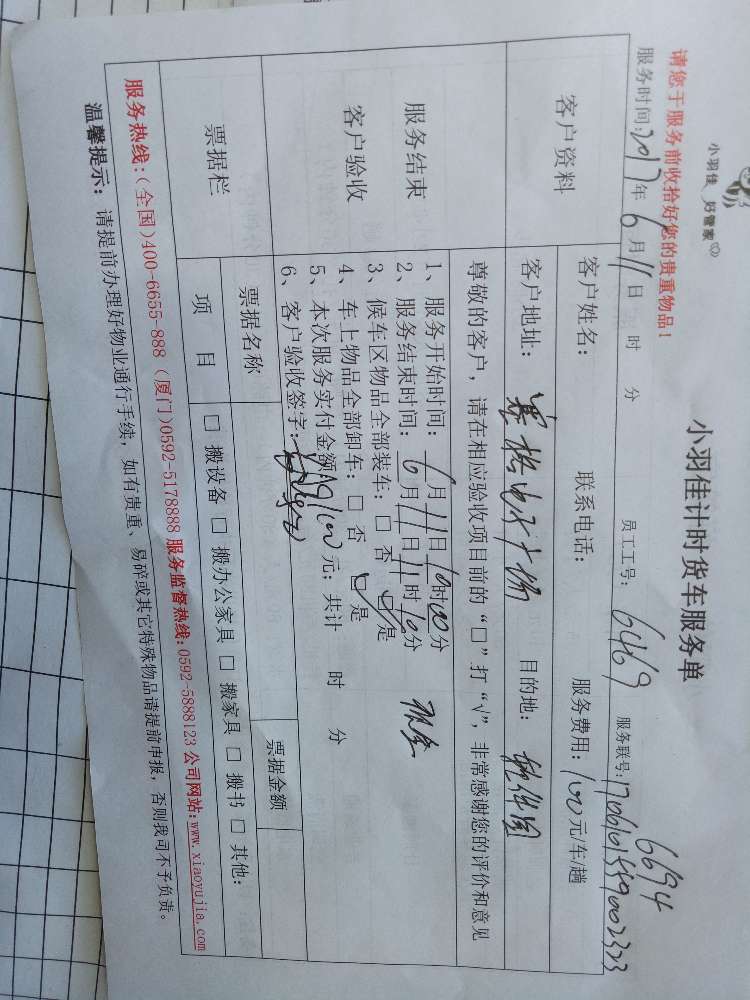 小羽佳 好管家
小羽佳计时货车服务单
请您于服务前收拾好您的贵重物品!
6694
服务时间:2017年6月11日 时 分 员工工号: 6469 服务联号:
客户资料
客户姓名: 联系电话: 服务费用: 100元/车/趟
客户地址: 赛格电子广场 目的地: 软件园
服务结束
客户验收
尊敬的客户,请在相应验收项目前的“□”打“√”,非常感谢您的评价和意见
1、服务开始时间: 6月11日10时00分
2、服务结束时间: 6月11日11时10分 现金
3、候车区物品全部装车: □ 否 ☑ 是
4、车上物品全部卸车: □ 否 ☑ 是
5、本次服务实付金额 100元; 共计 时 分
6、客户验收签字:
票据栏
票据名称 票据金额
项目 □ 搬设备 □ 搬办公家具 □ 搬家具 □ 搬书 □ 其他:
服务热线:(全国)400-6655-888 (厦门)0592-5178888 服务监督热线:0592-5888123 公司网站:www.xiaoyujia.com
温馨提示: 请提前办理好物业通行手续,如有贵重、易碎或其它特殊物品请提前申报,否则我司不予负责。